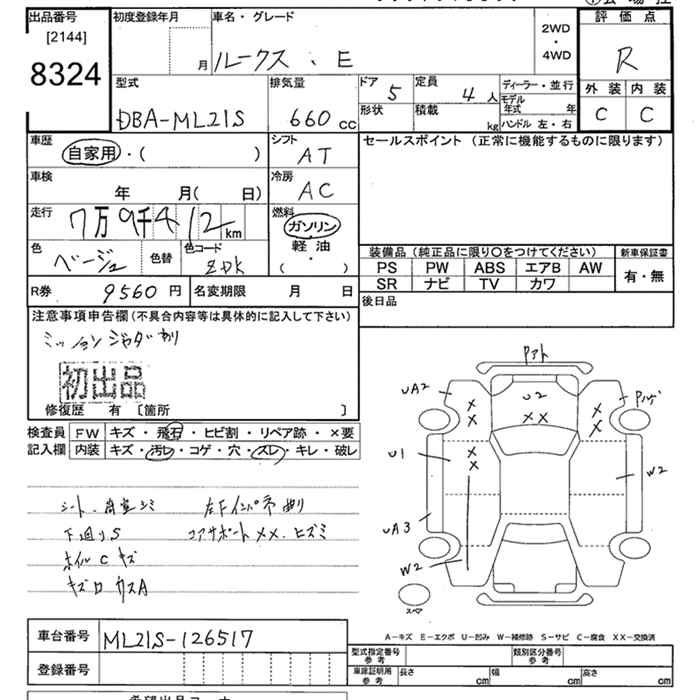 出品番号 初度登録年月 車名・グレード 2WD・4WD 評価点
[2144]
8324 月 ルークス . E R
型式 排気量 ドア 5 定員 4 人 ディーラー・並行 外装 内装
DBA-ML21S 660 cc 形状 積載 kg モデル年式 年 ハンドル 左・右 C C
車歴 シフト セールスポイント (正常に機能するものに限ります)
自家用・( ) AT
車検 冷房
年 月( 日) AC
走行 燃料
7万9千412 km ガソリン
色 色替 色コード 軽油・ 装備品 (純正品に限り〇をつけてください) 新車保証書
ベージュ ZDK ( ) PS PW ABS エアB AW 有・無
SR ナビ TV カワ
R券 9560 円 名変期限 月 日 後日品
注意事項申告欄 (不具合内容等は具体的に記入して下さい)
ミッションジャダー有り
初出品
修復歴 有 [箇所 ]
検査員 FW キズ・飛石・ヒビ割・リペア跡・×要
記入欄 内装 キズ・汚レ・コゲ・穴・スレ・キレ・破レ
UA2 U2 XX
U1 XX W2
UA3
W2
シート、荷室シミ 左Fインパネ曲り
下廻りS コアサポートXX、ヒズミ
ホイルCキズ
スペア
車台番号 ML21S-126517
登録番号
A-キズ E-エクボ U-凹み W-補修跡 S-サビ C-腐食 XX-交換済
型式指定番号 参考 類別区分番号 参考
車庫証明用 参考 長さ cm 幅 cm 高さ cm